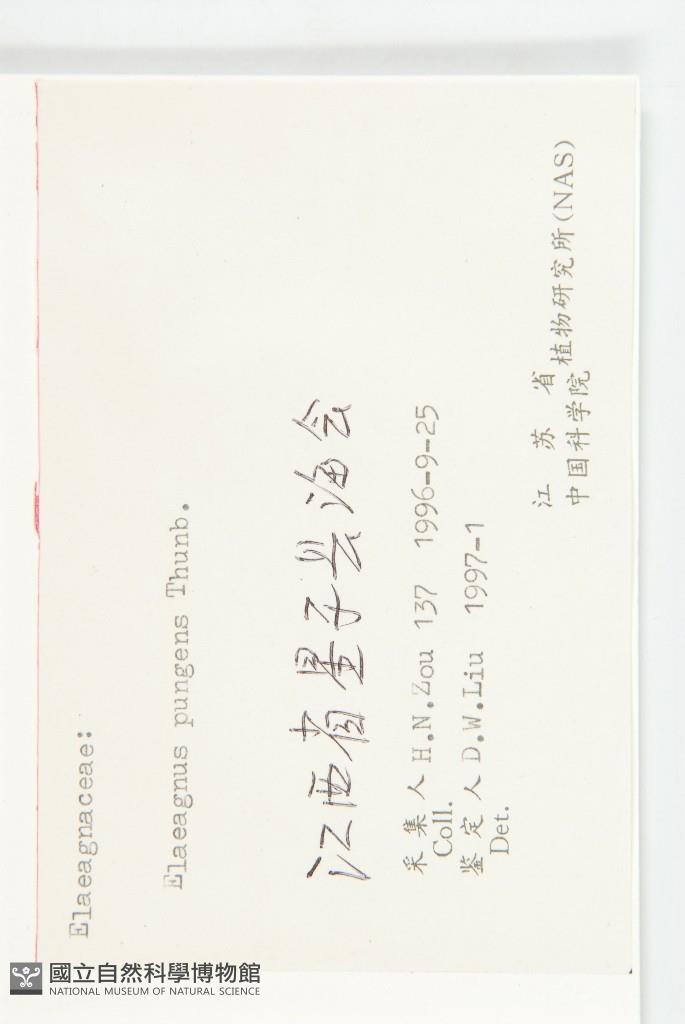 Elaeagnaceae:
Elaeagnus pungens Thunb.
江西省星子县海会
采集人 H.N.Zou 137 1996-9-25
Coll.
鉴定人 D.W.Liu 1997-1
Det.
江苏省
中国科学院植物研究所(NAS)
國立自然科學博物館
NATIONAL MUSEUM OF NATURAL SCIENCE